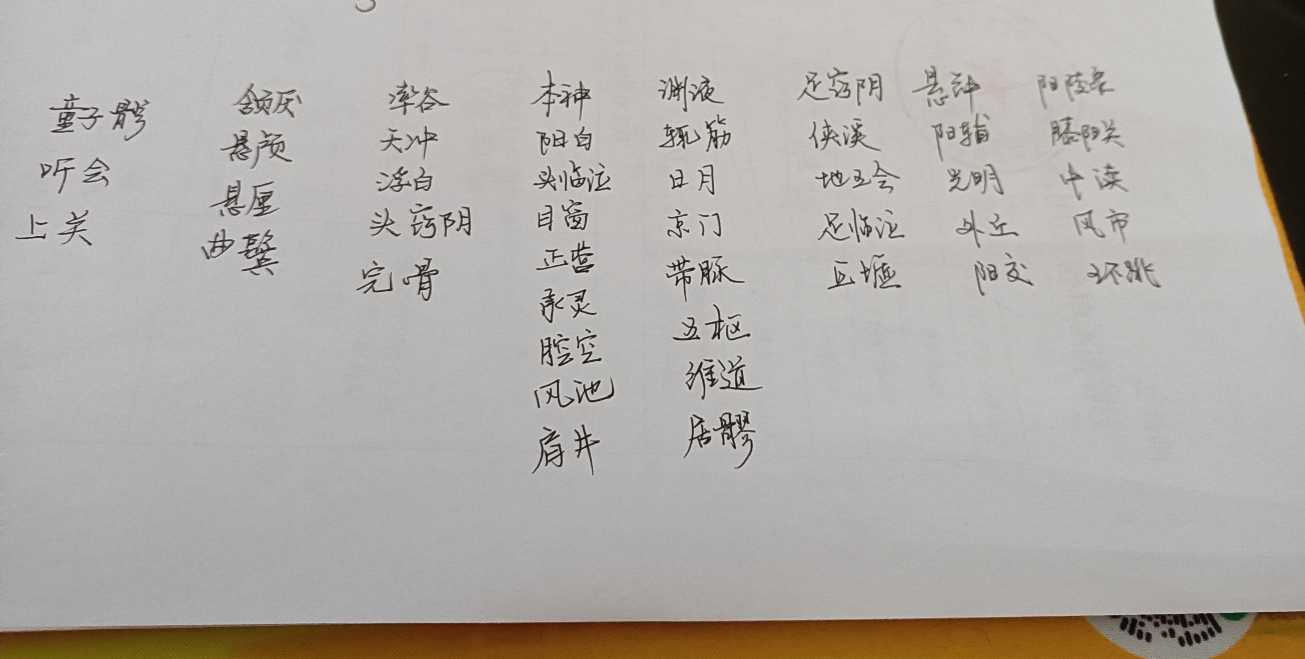 童子髎
听会
上关
颔厌
悬颅
悬厘
曲鬓
率谷
天冲
浮白
头窍阴
完骨
本神
阳白
头临泣
目窗
正营
承灵
腔空
风池
肩井
渊液
辄筋
日月
京门
带脉
五枢
维道
居髎
足窍阴
侠溪
地五会
足临泣
丘墟
悬钟
阳辅
光明
外丘
阳交
阳陵泉
膝阳关
中渎
风市
环跳